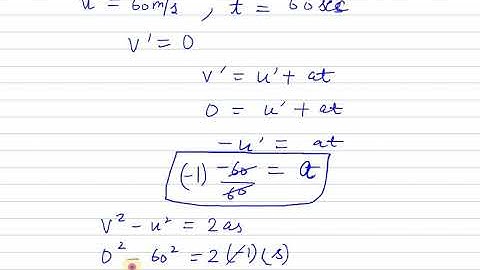 u = 60 m/s , t = 60 sec
v' = 0
v' = u' + at
0 = u' + at
-u' = at
(-1) -60/60 = a
v² - u² = 2as
0² - 60² = 2 (-1) (s)